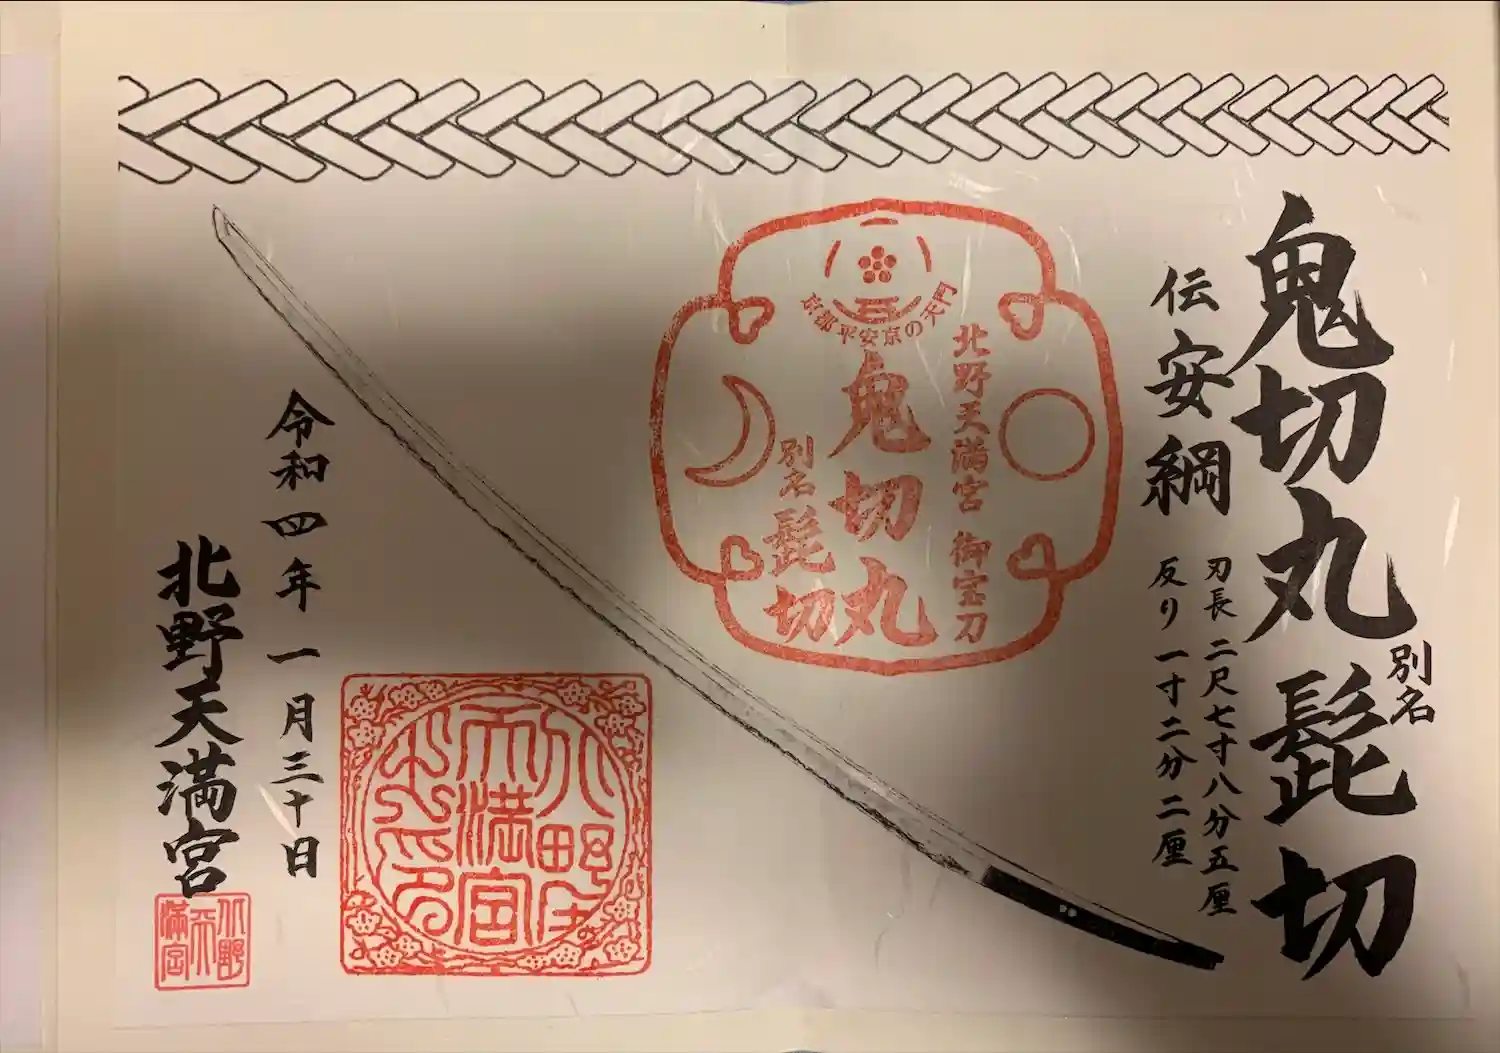 鬼切丸 別名 髭切
伝安綱
刃長 二尺七寸八分五厘
反り 一寸二分二厘
京都平安京の天門
北野天満宮 御宝刀
鬼切丸
別名 髭切
令和四年一月三十日
北野天満宮
北野
天
満宮